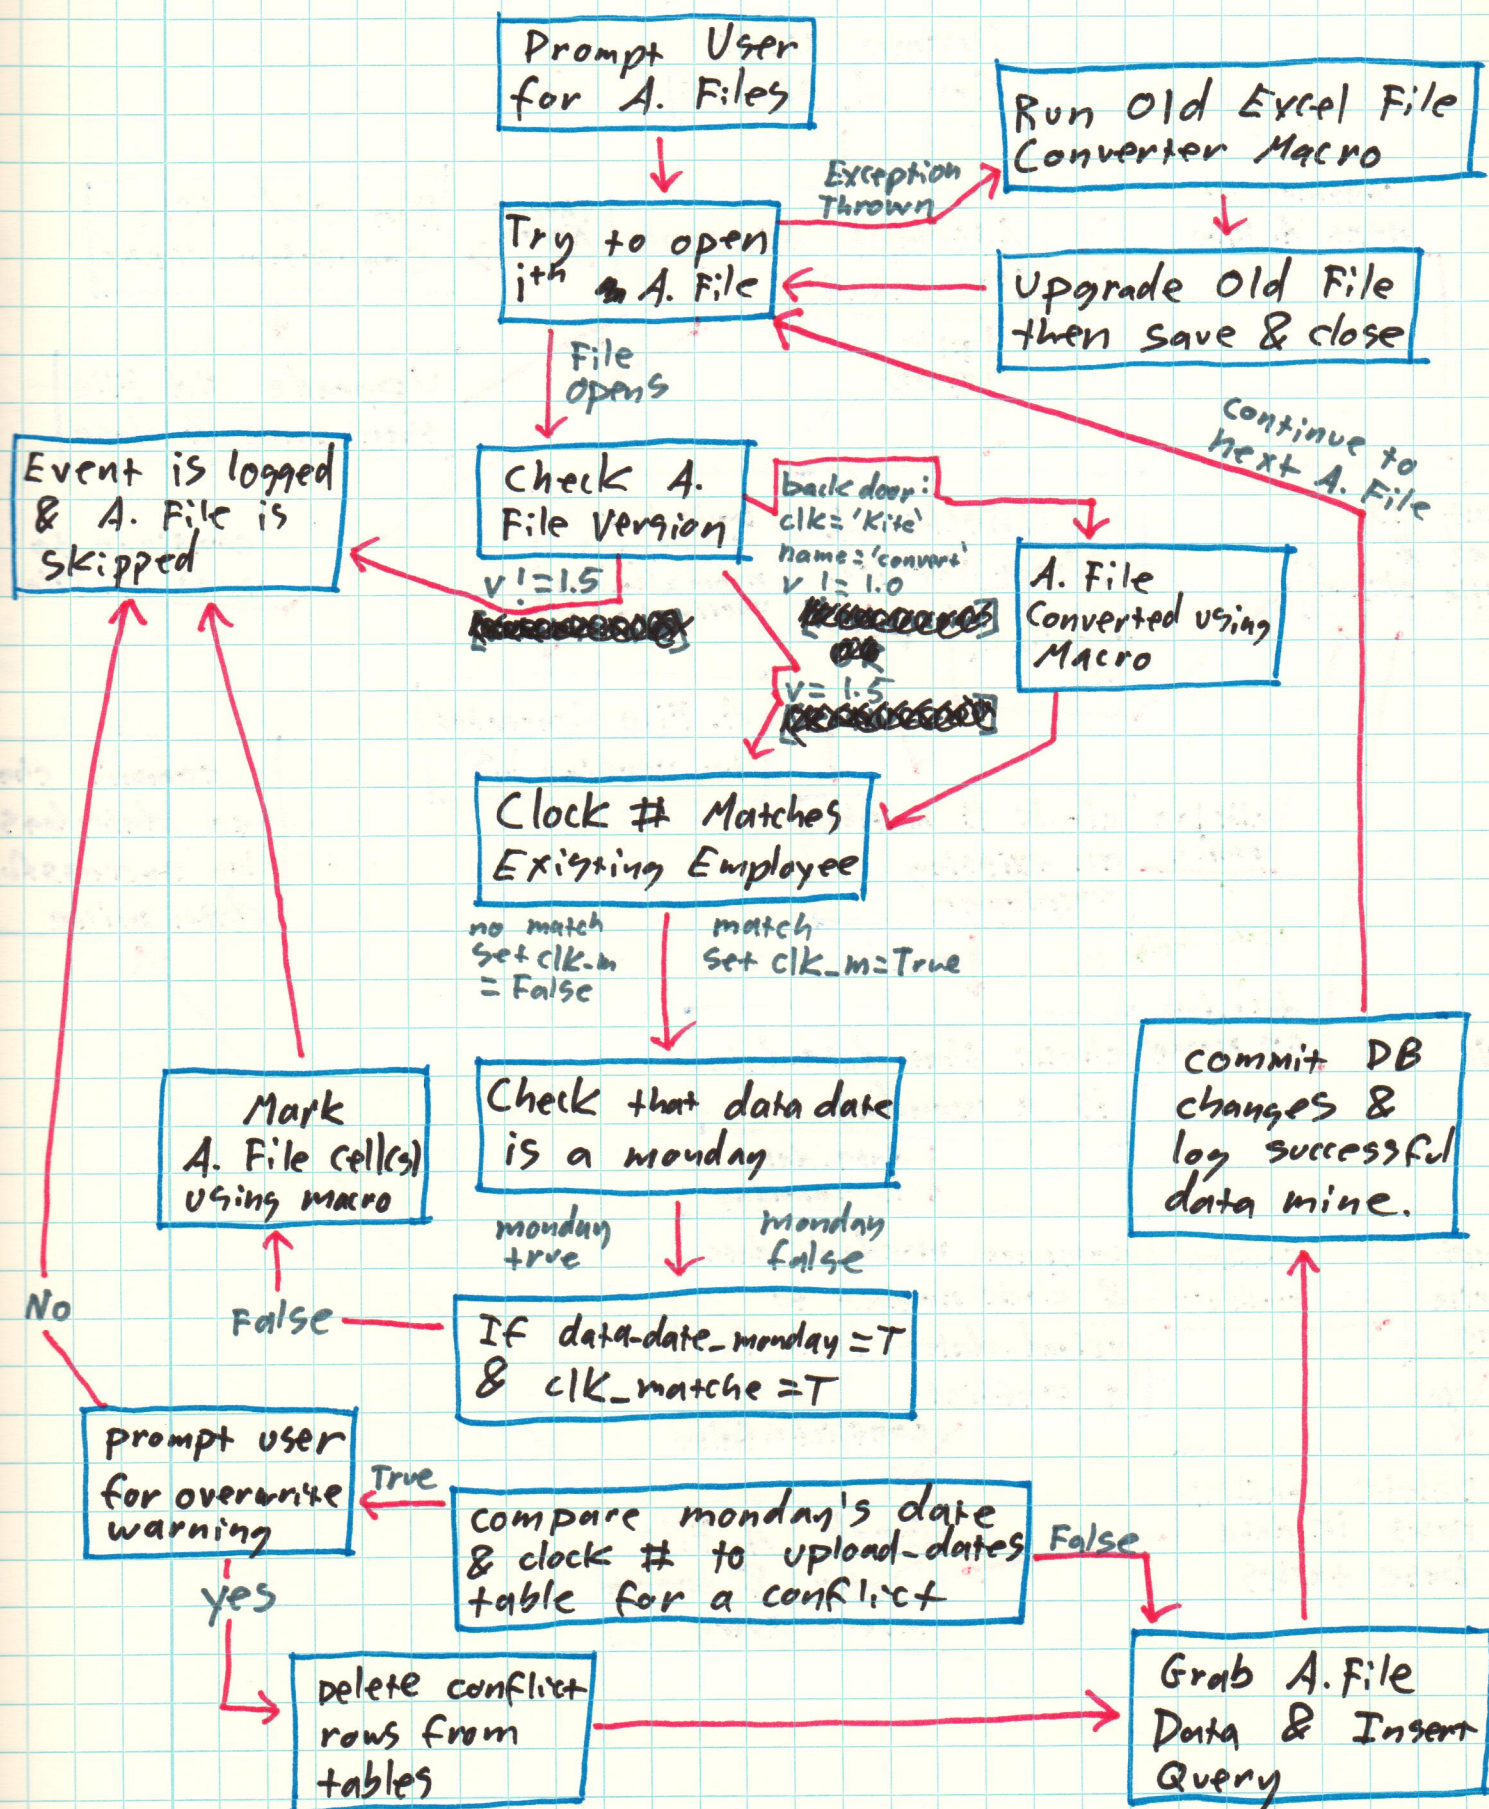 Prompt User
for A. Files
Run Old Excel File
Converter Macro
Exception
Thrown
Try to open
ith A. File
Upgrade Old File
then save & close
File
opens
continue to
next A. File
Event is logged
& A. File is
skipped
Check A.
File Version
back door:
clk='Kite'
name='convert'
v != 1.0
v != 1.5
v = 1.5
A. File
Converted using
Macro
Clock # Matches
Existing Employee
no match
set clk_m
= False
match
set clk_m=True
Check that data date
is a monday
Mark
A. File cell(s)
using macro
commit DB
changes &
log successful
data mine.
monday
true
monday
false
No
False
If data-date_monday =T
& clk_matche =T
prompt user
for overwrite
warning
True
compare monday's date
& clock # to upload_dates
table for a conflict
False
yes
Delete conflict
rows from
tables
Grab A. File
Data & Insert
Query